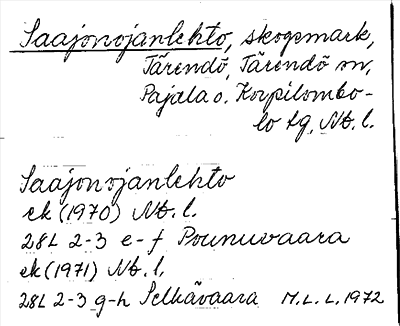 Saajonojanlehto, skogsmark,
Tärendö, Tärendö sn,
Pajala o. Korpilombo-
lo tg, Nb. l.
Saajonojanlehto
ek (1970) Nb. l.
28L 2-3 e-f Pounuvaara
ek (1971) Nb. l.
28L 2-3 g-h Selkävaara M. L. L. 1972